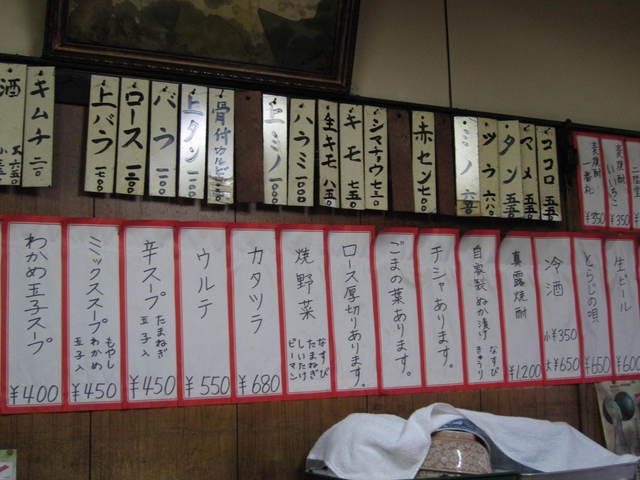 酒
大 六五〇
小 三五〇
キムチ 二〇
上バラ 一、七〇〇
ロース 一、二〇〇
バラ 一、〇〇〇
上タン 一、〇〇〇
骨付カルビ
上ミノ 一、〇〇〇
ハラミ 一、〇〇〇
生キモ 八五〇
キモ 七五〇
シマチョウ 七五〇
赤セン 七〇〇
ミノ
ツラ 六五〇
タン 五五〇
マメ 五五〇
ココロ 五五〇
麦焼酎 一番丸 ¥350
麦焼酎 いいちこ ¥350
二階堂
わかめ玉子スープ ¥400
ミックススープ もやし わかめ 玉子入 ¥450
辛スープ たまねぎ 玉子入 ¥450
ウルテ ¥550
カタツラ ¥680
焼野菜 なすび たまねぎ しいたけ ピーマン
ロース厚切りあります。
ごまの葉あります。
チシャあります。
自家製ぬか漬け なすび きゅうり
真露焼酎 ¥1,200
冷酒 小¥350 大¥650
とらじの唄 ¥650
生ビール ¥600